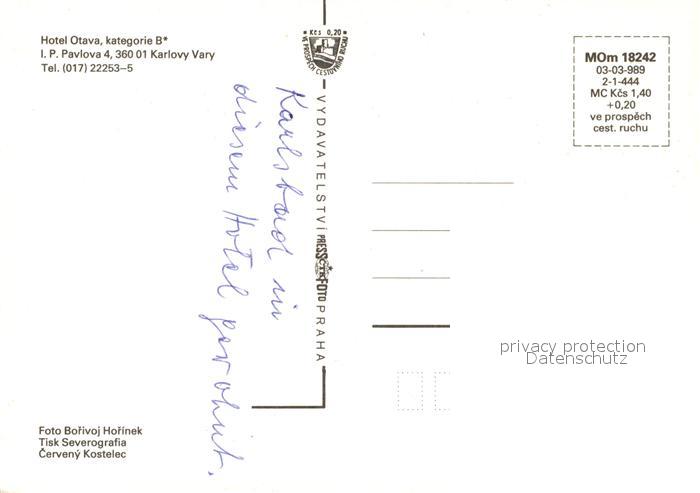 Hotel Otava, kategorie B*
I. P. Pavlova 4, 360 01 Karlovy Vary
Tel. (017) 22253–5
Kčs 0,20
VE PROSPĚCH CESTOVNÍHO RUCHU
MOm 18242
03-03-989
2-1-444
MC Kčs 1,40
+0,20
ve prospěch
cest. ruchu
Karlsbad in
diesem Hotel gewohnt.
VYDAVATELSTVÍ PRESSFOTO PRAHA
ČTK
privacy protection
Datenschutz
Foto Bořivoj Hořínek
Tisk Severografia
Červený Kostelec